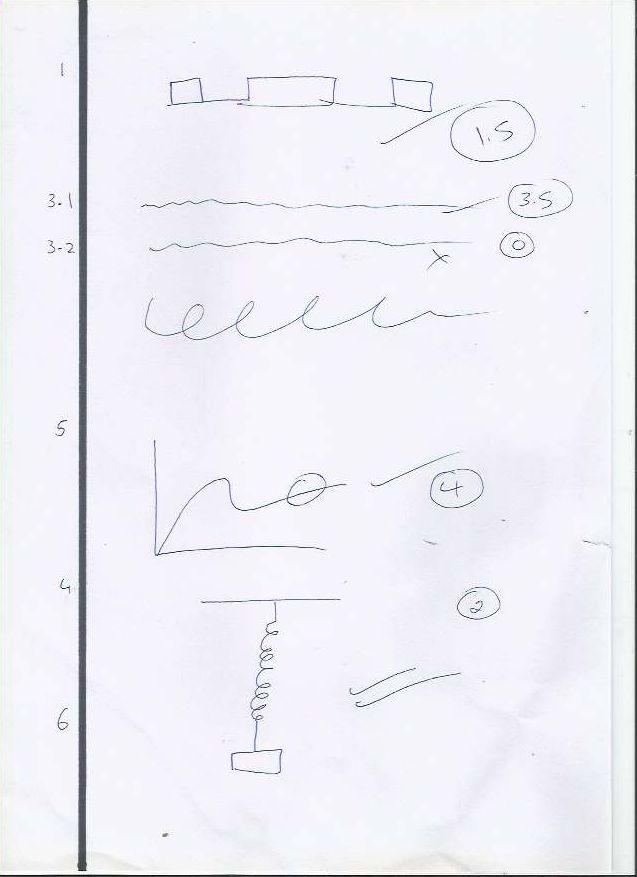 1
1.5
3.1 3.5
3-2 0
5
4
4
2
6